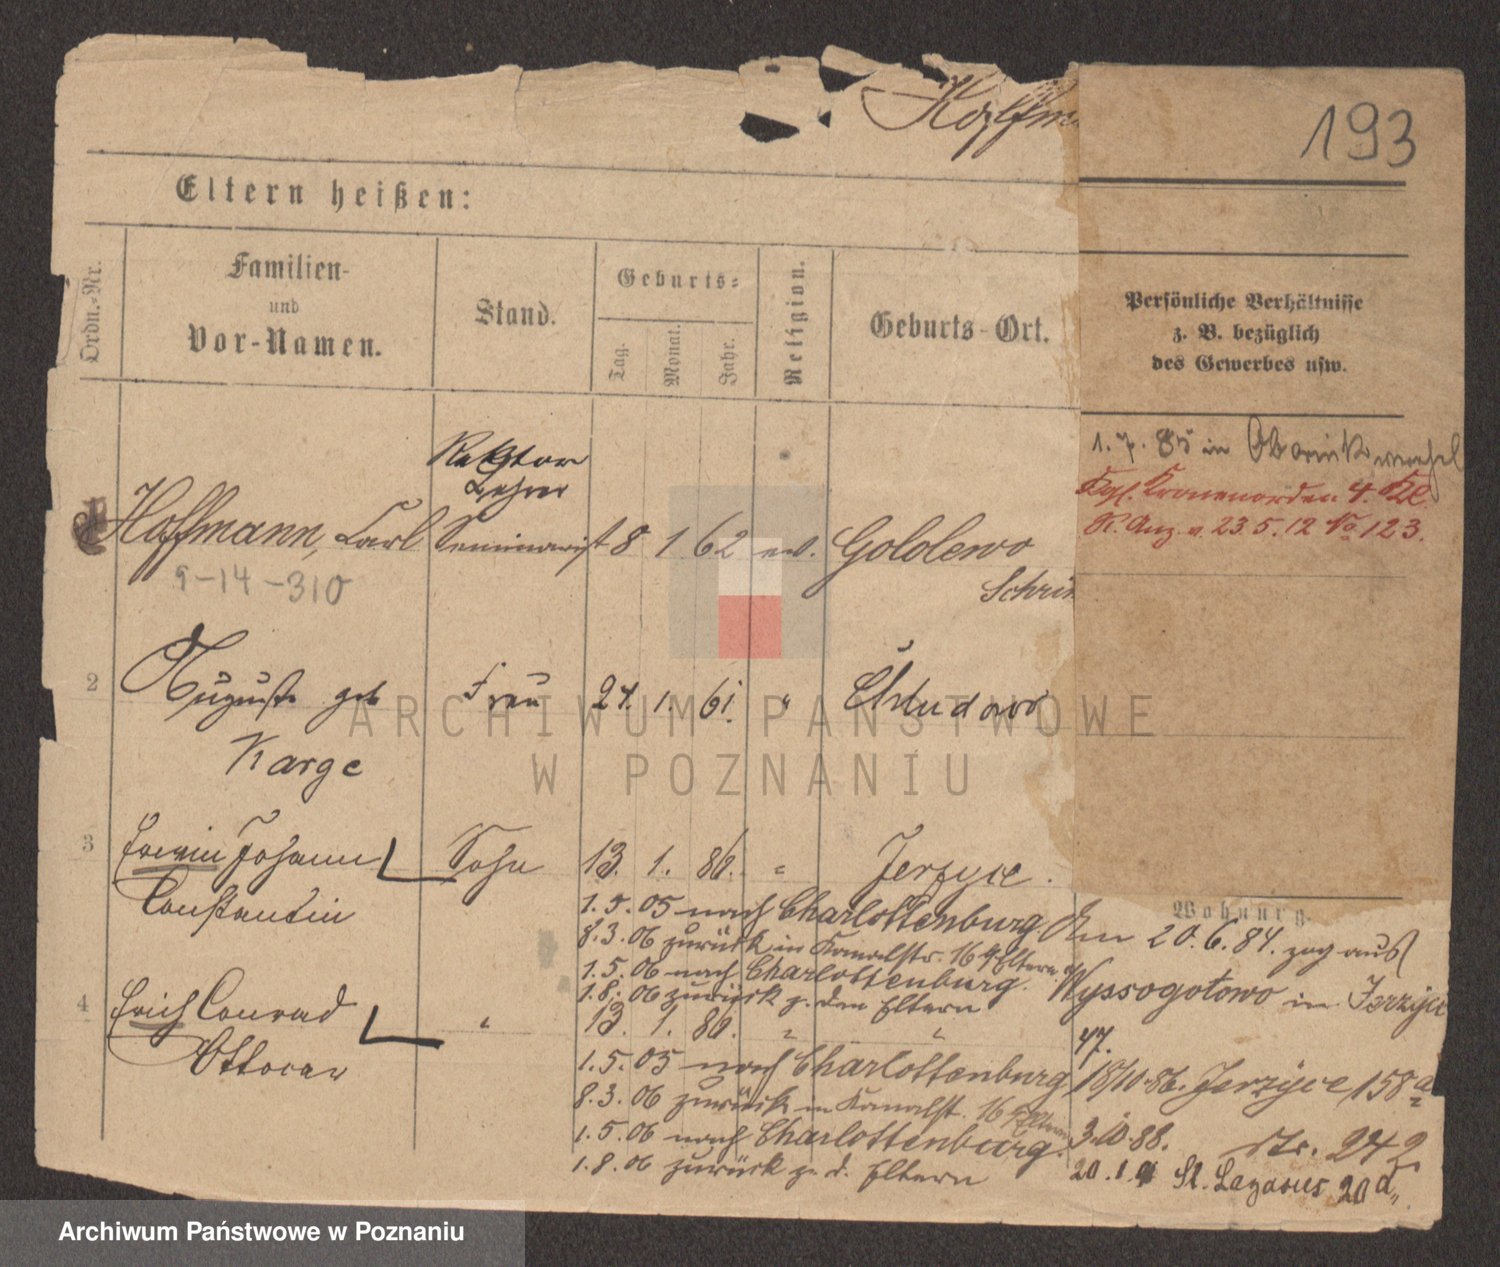 193
Eltern heißen:
Ordn.-Nr.
Familien-
und
Vor-Namen.
Stand.
Geburts-
Tag.
Monat.
Jahr.
Religion.
Geburts-Ort.
Persönliche Verhältnisse
z. B. bezüglich
des Gewerbes usw.
1. 7. 85 in
Kgl. Kronenorden 4. Kl.
R. Anz. v. 23.5.12 No 123.
Rektor
Lehrer
Hoffmann, Carl Seminarist 8 1 62 ev. Gololewo
9-14-310
Schrim
2 Auguste geb Frau 24. 1. 61. "
Karge
3 Erwin Johann Sohn 13. 1. 86. " Jerzyce.
Constantin
1.5.05 nach Charlottenburg.
8.3.06 zurück in Kanalstr. 16 Eltern
1.5.06 nach Charlottenburg.
1.8.06 zurück z. den Eltern
4 Erich Conrad " 13. 1. 86. " "
Ottocar
1.5.05 nach Charlottenburg
8.3.06 zurück in Kanalst. 16 Eltern
1.5.06 nach Charlottenburg.
1.8.06 zurück z. d. Eltern
Wohnung.
Am 20.6.84. zog aus
Wyssogotowo in Jerzyce
47.
18/10.86. Jerzyce 158a
3.10.88. Nr. 242
20.1. St. Lazarus 20a
ARCHIWUM PAŃSTWOWE
W POZNANIU
Archiwum Państwowe w Poznaniu